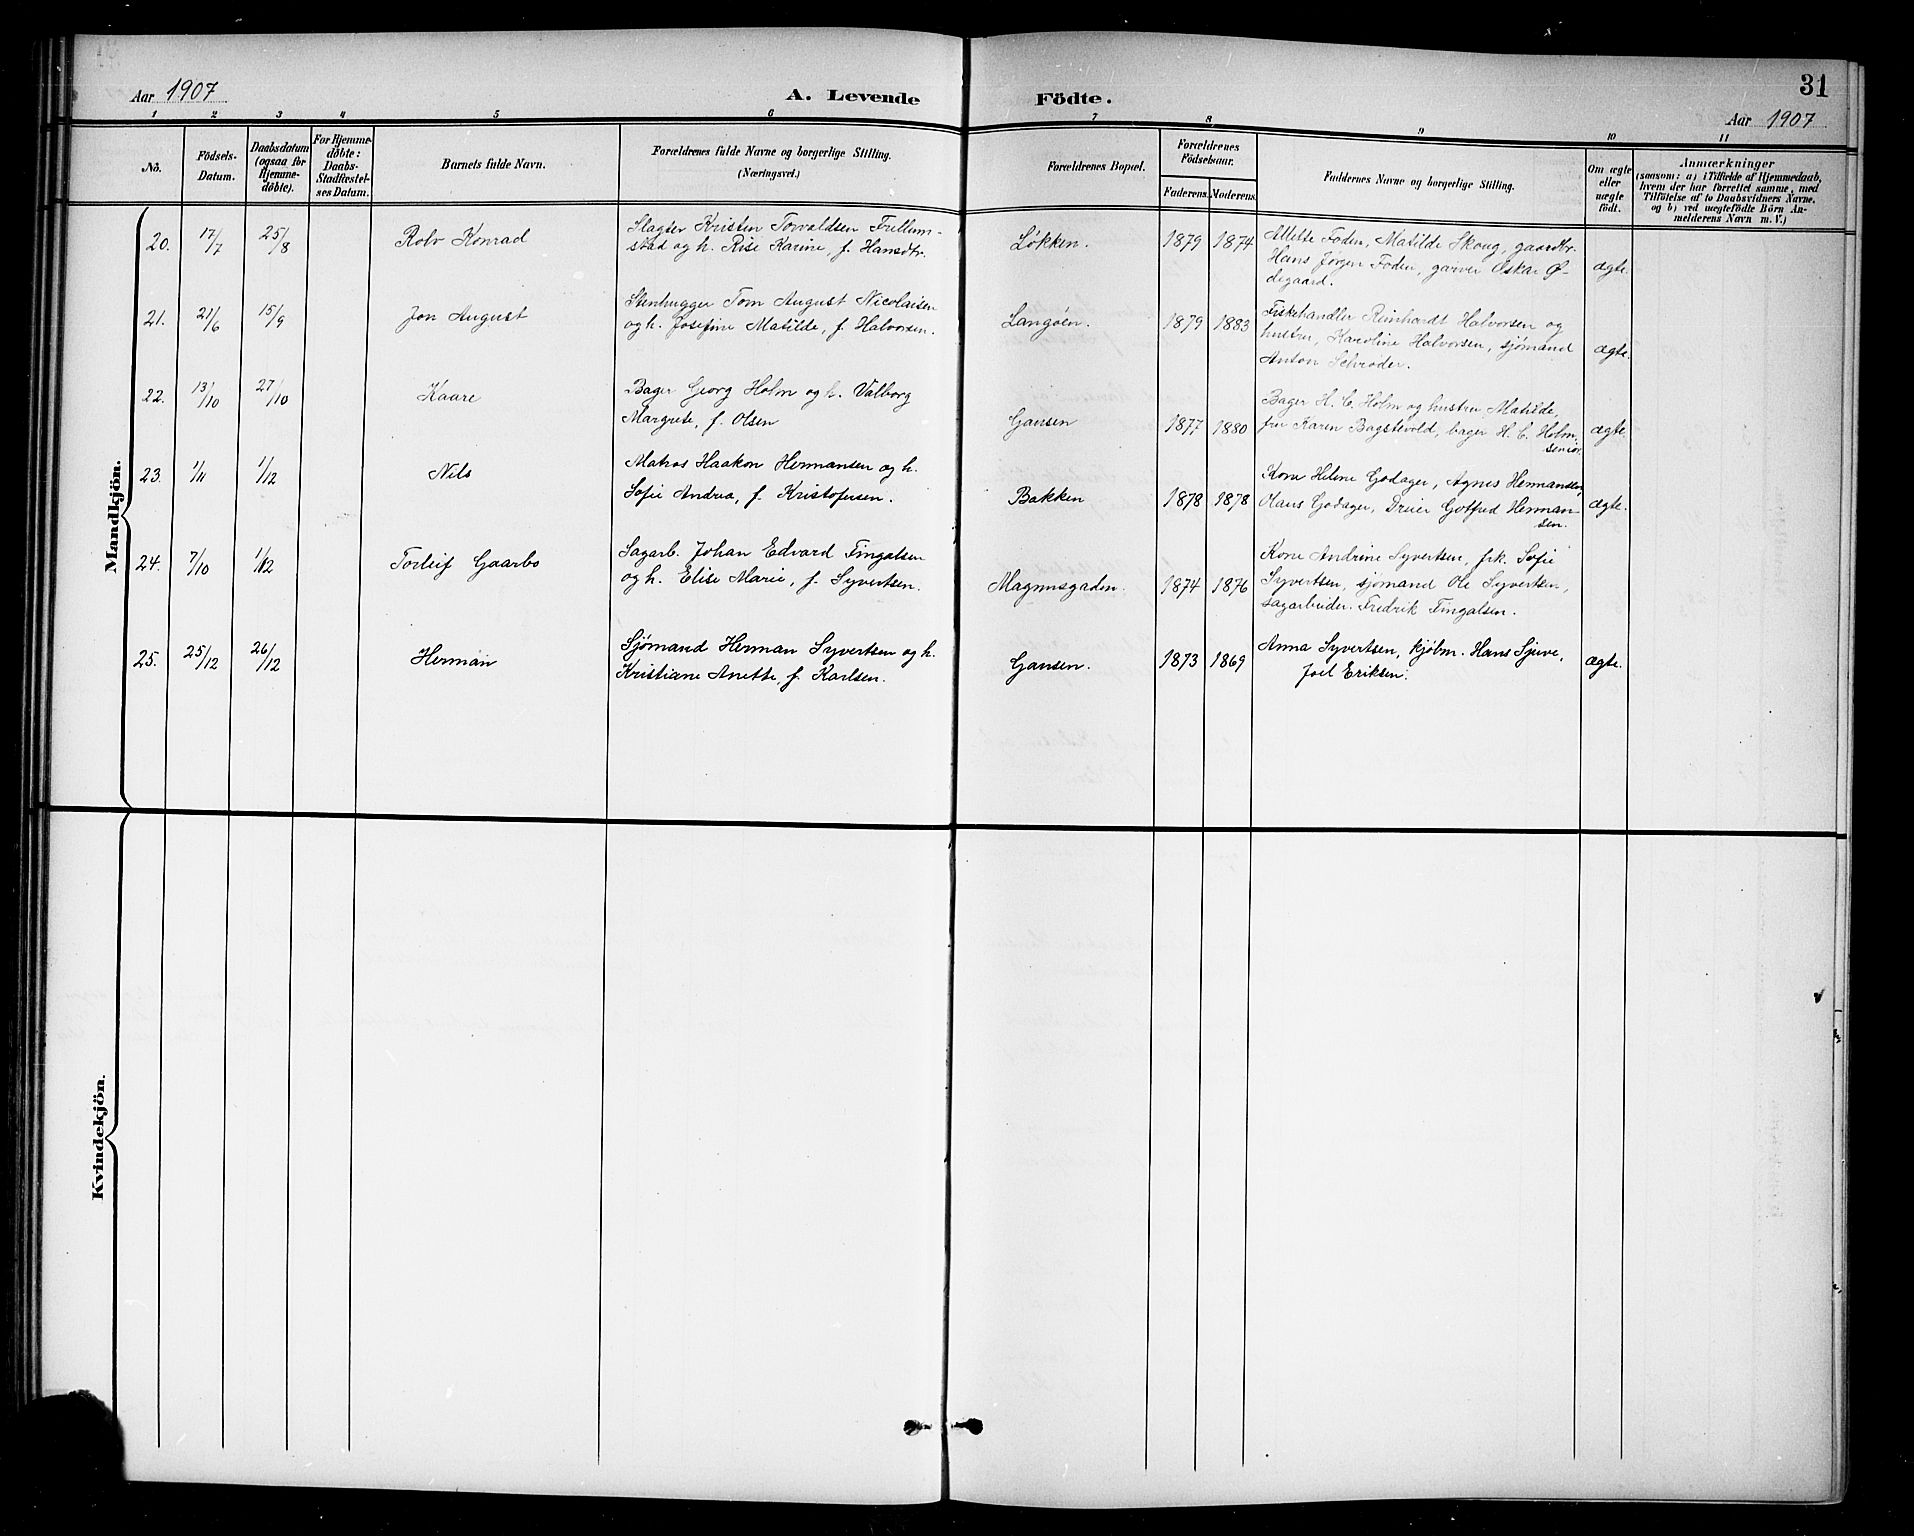 Aar 1907
A. Levende
Födte.
31
Aar 1907
1 2 3 4 5 6 7 8 9 10 11
No.
Födsels-
Datum.
Daabsdatum
(ogsaa for
Hjemme-
döbte).
For Hjemme-
döbte:
Daabs-
Stadfæstel-
ses Datum.
Barnets fulde Navn.
Forældrenes fulde Navne og borgerlige Stilling.
(Næringsvei.)
Forældrenes Bopæl.
Forældrenes
Födselsaar.
Faderens. Moderens.
Faddernes Navne og borgerlige Stilling.
Om ægte
eller
uægte
födt.
Anmærkninger
(saasom: a) i Tilfælde af Hjemmedaab,
hvem der har forrettet samme, med
Tilföielse af to Daabsvidners Navne.
og b) ved uægtefödte Börn An-
melderens Navn m. V.)
Mandkjön.
20. 17/7 25/8 Rolv Konrad
Slagter Kristen Torvaldsen Frellum-
stad og h. Rise Karine, f. Hansdtr.
Løkken. 1879 1874
Mette Foden, Matilde Skoug, gaardbr.
Hans Jørgen Foden, garver Oskar Ø-
degaard.
ægte.
21. 21/6 15/9 Jon August
Stenhugger Tom August Nicolaisen
og h. Josefine Matilde, f. Halvorsen.
Langøen. 1879 1883
Fiskehandler Reinhardt Halvorsen og
hustru, Karoline Halvorsen, sjømand
Anton Schrøder.
ægte.
22. 13/10 27/10 Kaare
Bager Georg Holm og h. Valborg
Margrete, f. Olsen
Gansen 1877 1880
Bager H. C. Holm og hustru Matilde,
fru Karen Bagstevold, bager H. C. Holm
senior.
ægte.
23. 1/11 1/12 Nils
Matros Haakon Hermansen og h.
Sofie Andrea, f. Kristofersen.
Bakken 1878 1878
Kone Helene Godager, Agnes Hermansen,
Hans Godager, Dreier Gotfred Herman-
sen.
ægte.
24. 7/10 1/12 Torleif Gaarbo
Sagarb. Johan Edvard Fingalsen
og h. Elise Marie, f. Syvertsen.
Magnusgaden. 1874 1876
Kone Andrine Syvertsen, frk. Sofie
Syvertsen, sjømand Ole Syvertsen,
sagarbeider Fredrik Fingalsen.
25. 25/12 26/12 Herman
Sjømand Herman Syvertsen og h.
Kristiane Anette, f. Karlsen.
Gansen. 1873 1869
Anna Syvertsen, kjøbm. Hans Sjuve,
Joel Eriksen.
ægte.
Kvindekjön.